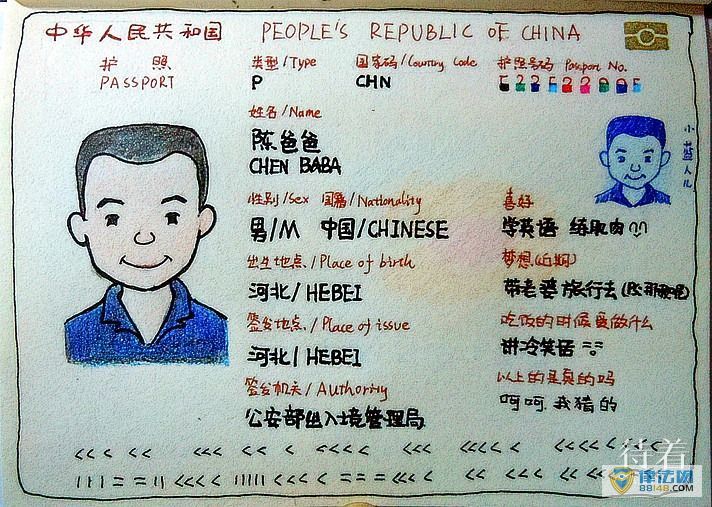 中华人民共和国 PEOPLE'S REPUBLIC OF CHINA
护照 类型/Type 国家码/Country Code 护照号码 Passport No.
PASSPORT P CHN
姓名/Name
陈爸爸
CHEN BABA
小蓝人儿
性别/Sex 国籍/Nationality 喜好
男/M 中国/CHINESE 学英语 练肌肉
出生地点/Place of birth 梦想(近期)
河北/HEBEI 带老婆旅行去
签发地点/Place of issue 吃饭的时候要做什么
河北/HEBEI 讲冷笑话
签发机关/Authority 以上的是真的吗
公安部出入境管理局 呵呵.我猜的
待着
律法网
88148.COM